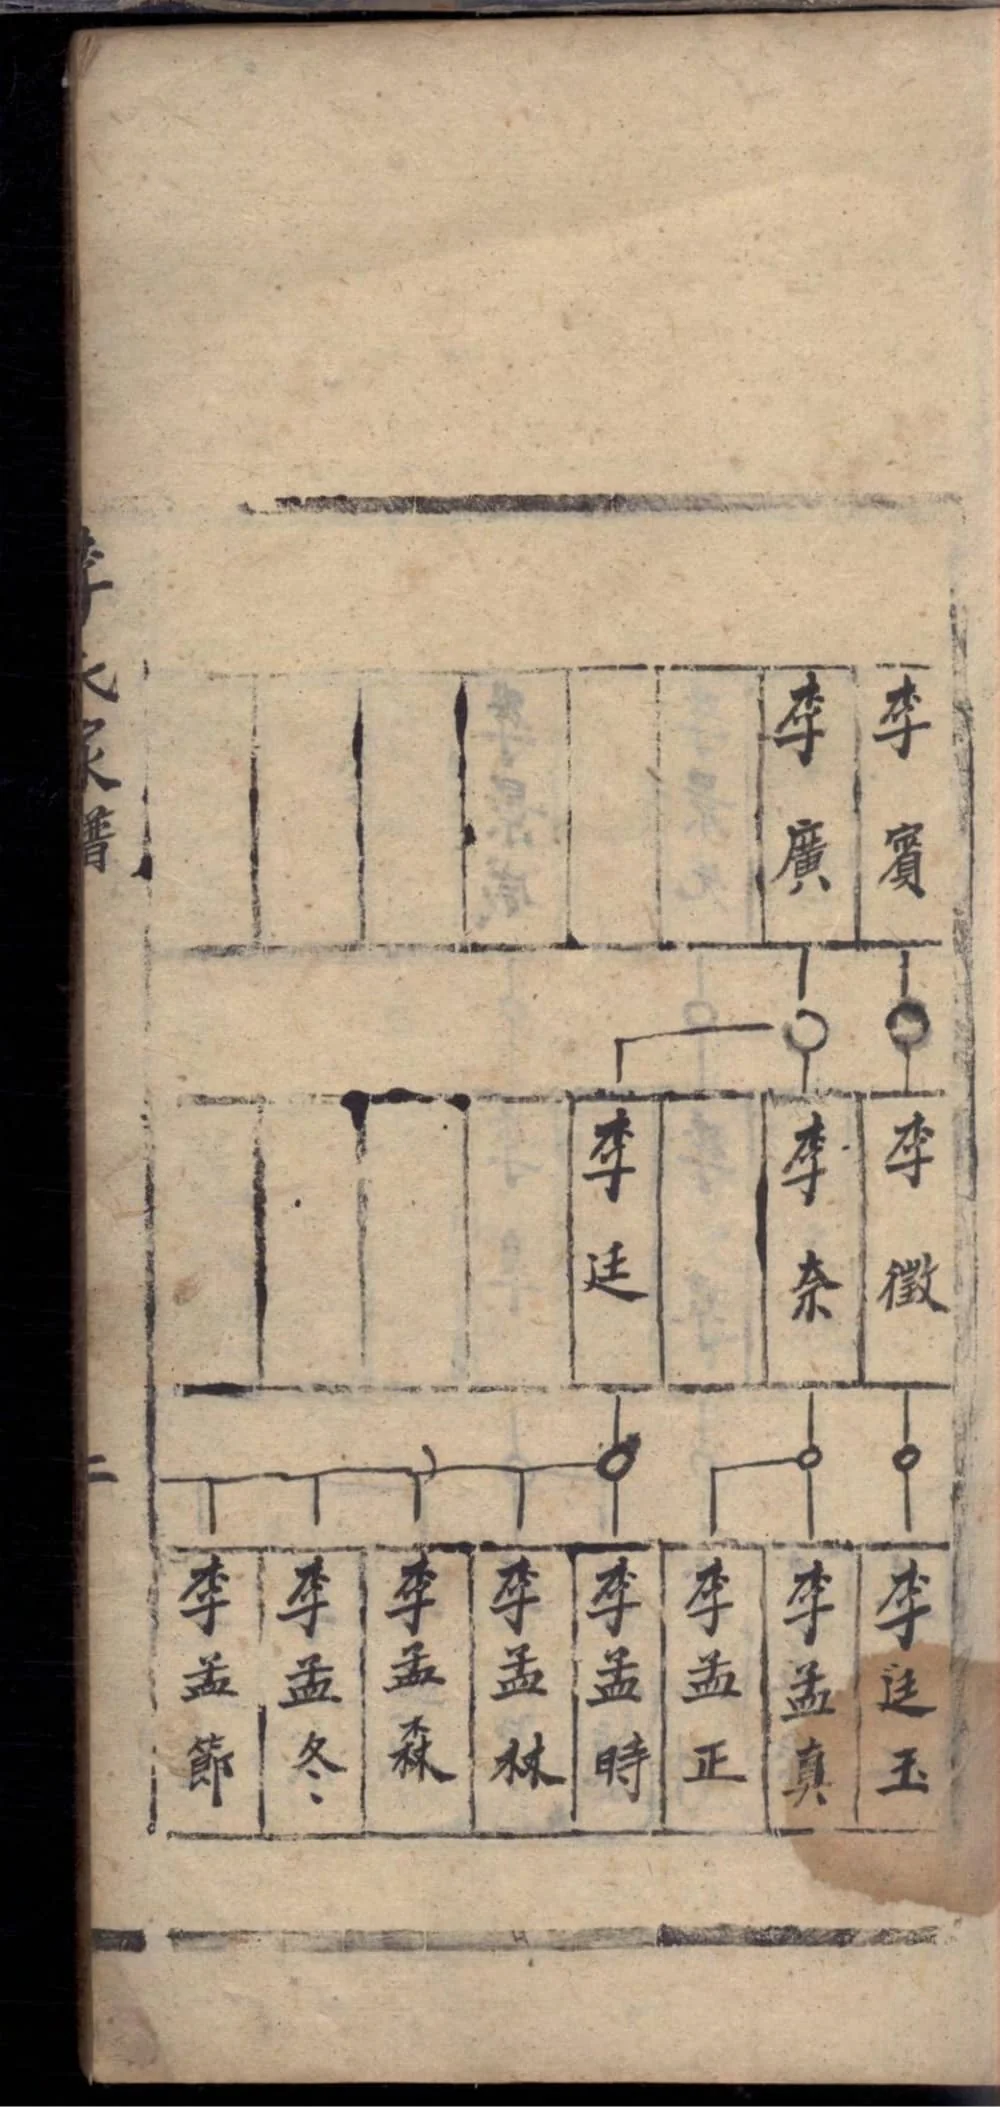 李賓
李廣
李徵
李奈
李廷
李廷玉
李孟真
李孟正
李孟時
李孟林
李孟森
李孟冬
李孟節
李氏家譜
二